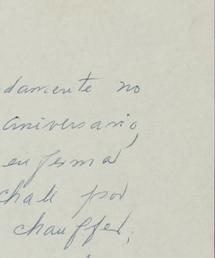 damente no
aniversario,
enferma
chale por
chauffer,